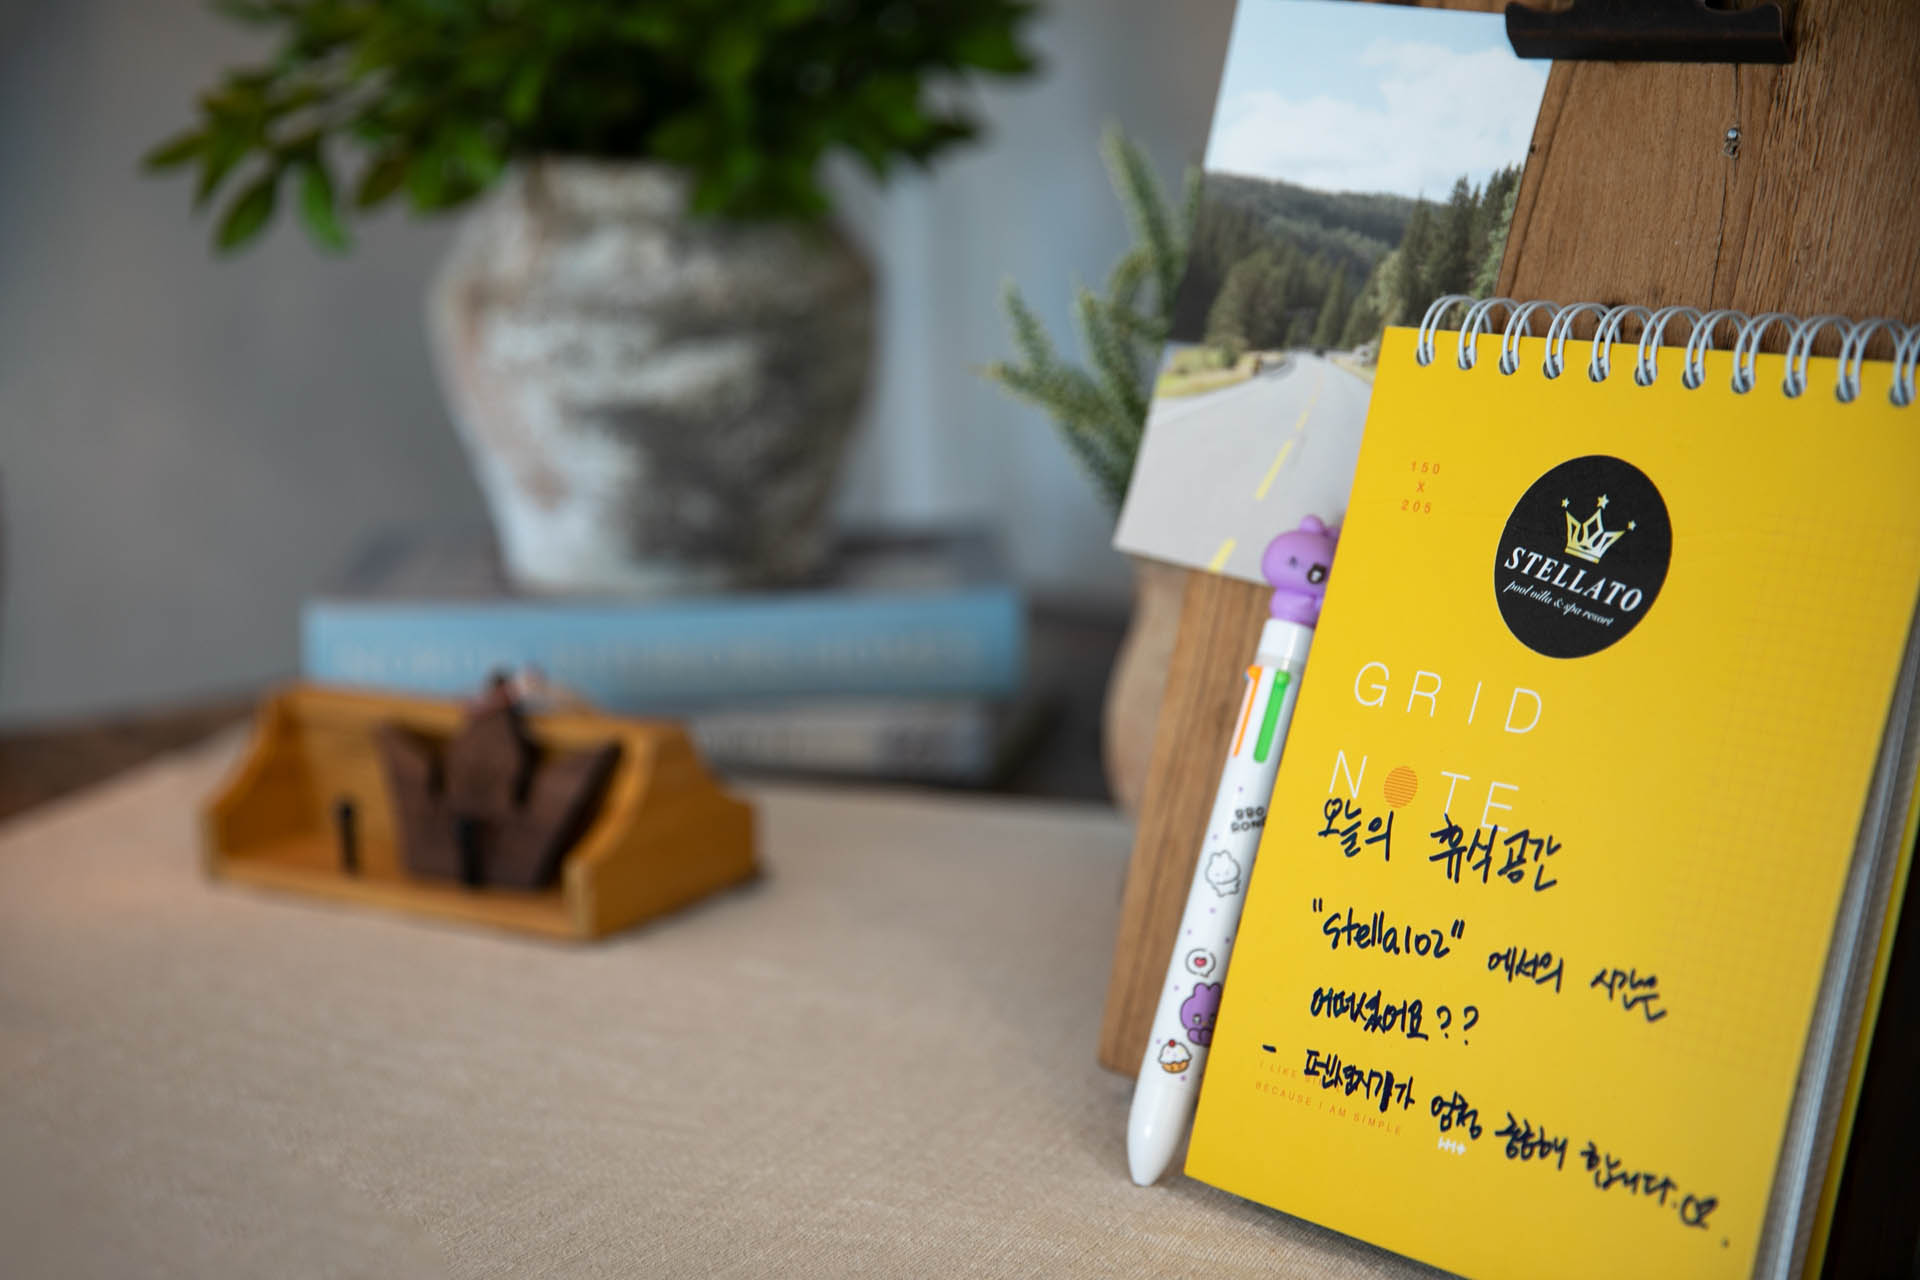 150
X
205
STELLATO
pool villa & spa resort
GRID
NOTE
오늘의 휴식공간
"Stella102" 에서의 시간은
어떠셨어요??
- 펜션지기가 엄청 궁금해 합니다.
I LIKE
BECAUSE I AM SIMPLE